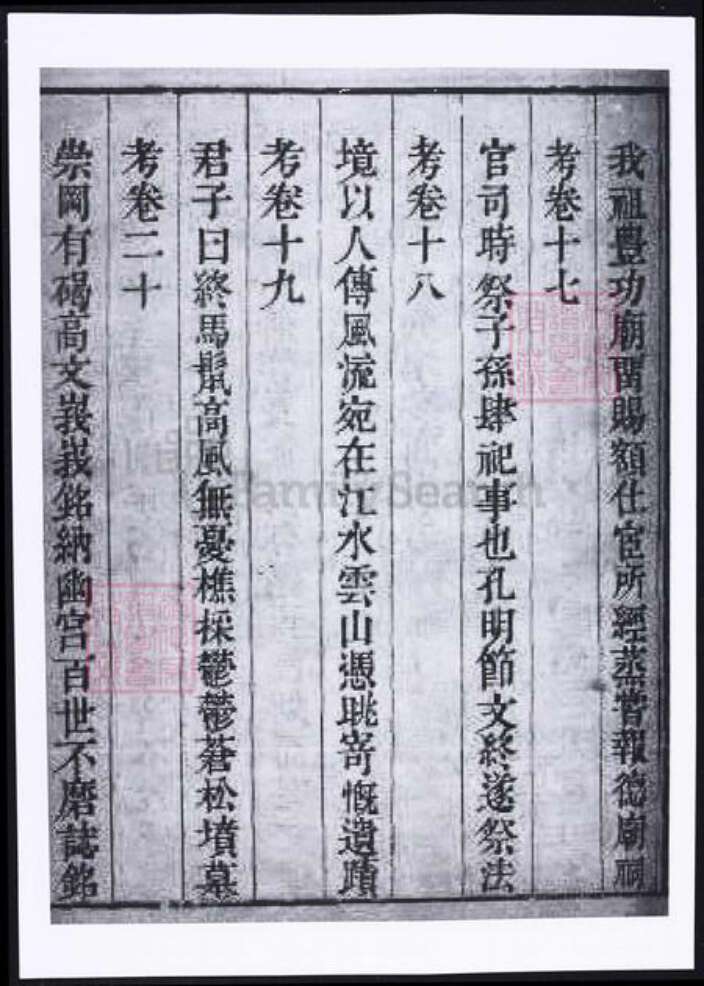 我祖豊功廟留賜額仕宦所經蒸嘗報德廟祠
考卷十七
官司時祭子孫肆祀事也孔明節文終遂祭法
考卷十八
境以人傳風流宛在江水雲山憑眺寄慨遺蹟
考卷十九
君子曰終馬鬛高風無憂樵採鬱鬱蒼松墳墓
考卷二十
崇岡有碣高文峩峩銘納幽宫百世不磨誌銘
FamilySearch